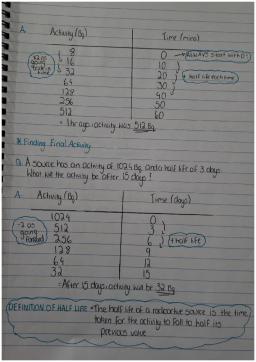 A. Activity (Bq) Time (mins)
8 0 → ALWAYS start with 0!
16 10
32 20 + half life each time
64 30
128 40
256 50
512 60
∴ 1hr ago activity was 512 Bq
* Finding Final Activity
Q. A source has an activity of 1024 Bq and a half life of 3 days.
What will the activity be after 15 days?
A. Activity (Bq) Time (days)
1024 0
÷2 as going forward 512 3
256 6 + half life
128 9
64 12
32 15
∴ After 15 days activity will be 32 Bq
DEFINITION OF HALF LIFE • The half life of a radioactive source is the time
taken for the activity to fall to half its
previous value